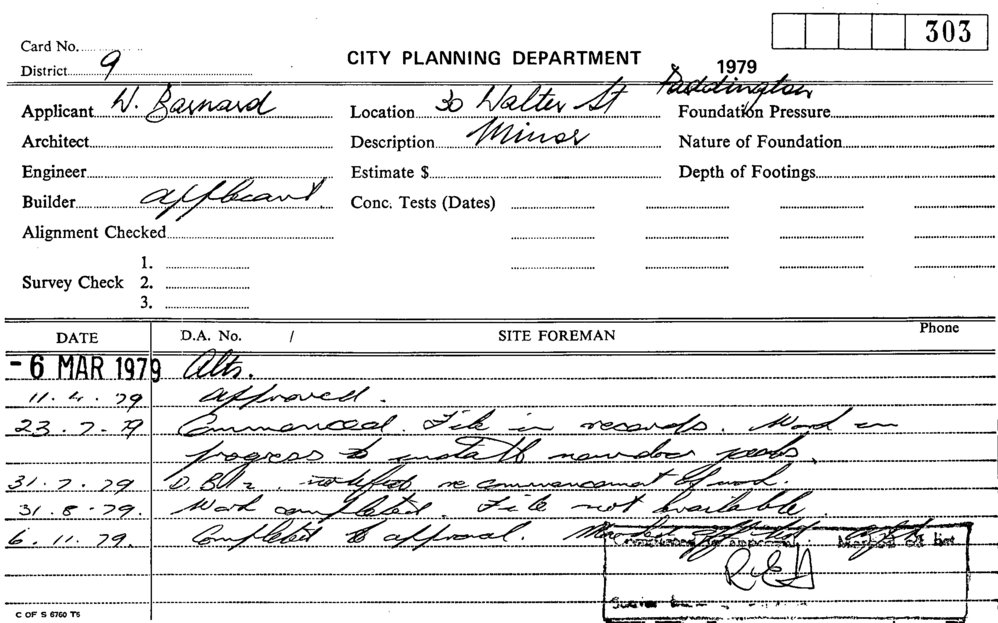 303
Card No.
CITY PLANNING DEPARTMENT
District 9
1979
Applicant W. Barnard
Location 30 Walter St Paddington
Foundation Pressure
Architect
Description Minor
Nature of Foundation
Engineer
Estimate $
Depth of Footings
Builder applicant
Conc. Tests (Dates)
Alignment Checked
1.
Survey Check 2.
3.
DATE D.A. No. / SITE FOREMAN Phone
- 6 MAR 1979 Alts.
11. 4. 79 approved.
23. 7. 79 Commenced. File in records. Work in
progress to install
31. 7. 79 re commencement of work.
31. 8. 79. Work completed. File not available
6. 11. 79. Completed to approval. Marked off
Marked off list
C OF S 6760 T5